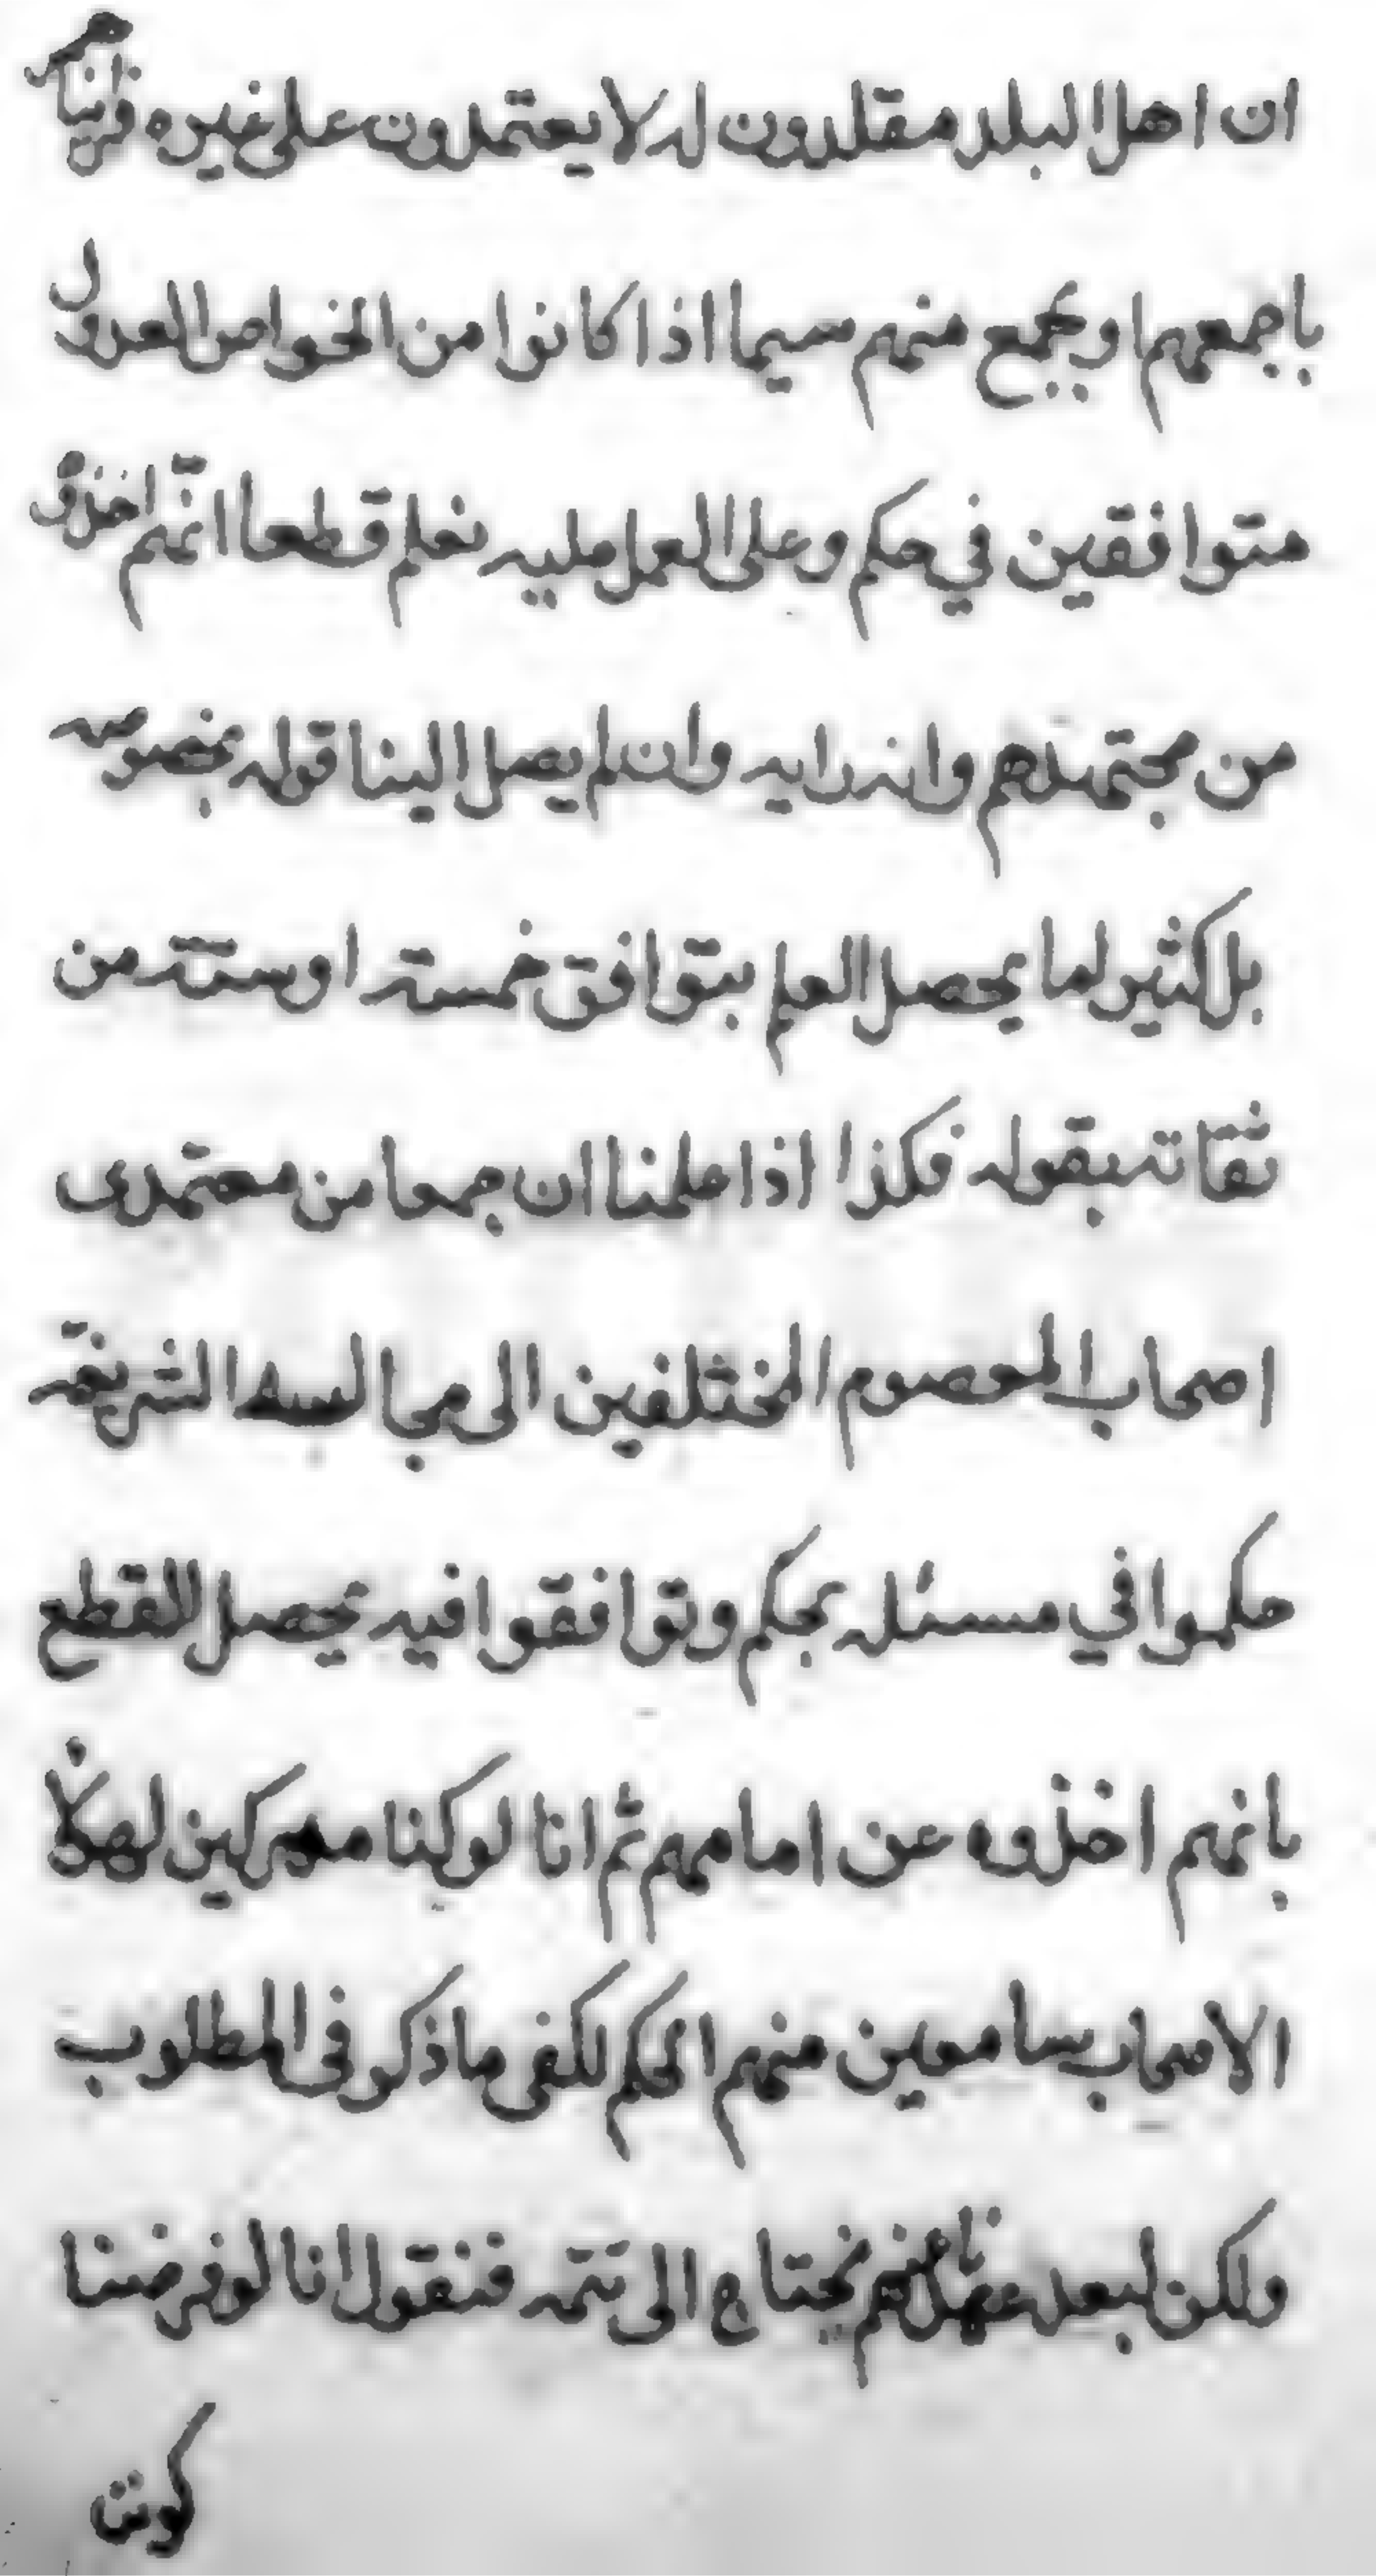 ان اهل البلد مقلدون له لا يعتمدون على غيره فرأيناهم
باجمعهم او بجمع منهم سيما اذا كانوا من الخواص العدول
متوافقين في حكم وعلى العمل عليه نعلم قطعا انهم اخذوه
من مجتهدهم وانه رايه وان لم يصل الينا قوله بخصوصه
بل كثير لما يحصل العلم بتوافق خمسته او سته من
ثقاته بقوله فكذا اذا علمنا ان جمعا من معتمدى
اصحاب المعصوم المختلفين الى مجالسه الشريفة
حكموا في مسئله بحكم وتوافقوا فيه يحصل القطع
بانهم اخذوه عن امامهم ثم انا لو كنا مدركين لهؤلاء
الاصحاب سامعين منهم الحكم لكفى ما ذكر فى المطلوب
ولكن لبعد عهدنا عنهم نحتاج الى تتمه فنقول انا لو فرضنا
كون